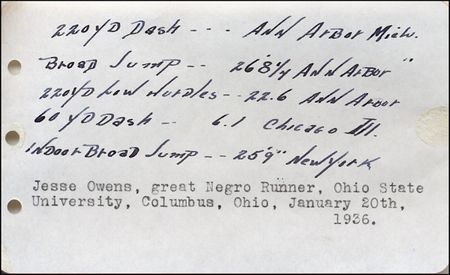 220 YD Dash - - - Ann Arbor Mich.
Broad Jump -- 26'8¼ Ann Arbor "
220 YD Low Hurdles -- 22.6 Ann Arbor
60 YD Dash -- 6.1 Chicago Ill.
Indoor Broad Jump -- 25'9" New York
Jesse Owens, great Negro Runner, Ohio State
University, Columbus, Ohio, January 20th,
1936.